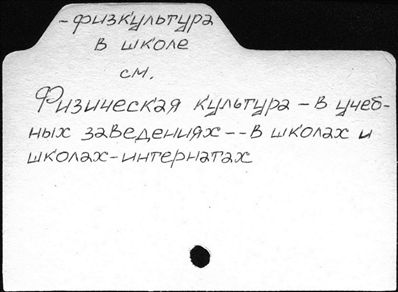 -физкультура
в школе
см.
Физическая культура - в учеб-
ных заведениях -- в школах и
школах-интернатах